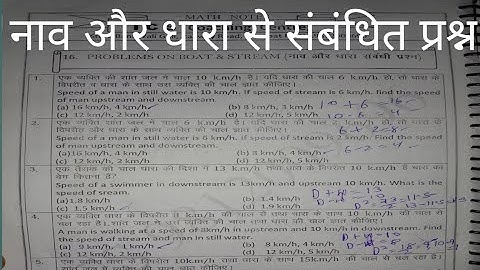 MATH NOTE
नाव और धारा से संबंधित प्रश्न
16. PROBLEMS ON BOAT & STREAM (नाव और धारा संबंधी प्रश्न)
1. एक व्यक्ति की शांत जल में चाल 10 k.m/h है। यदि धारा की चाल 6 km/h हो, तो धारा के
विपरीत व धारा के साथ उस व्यक्ति की चाल ज्ञात कीजिए।
Speed of a man in still water is 10 km/h. If speed of stream is 6 km/h. Find the speed
of man upstream and downstream.
(a) 16 km/h, 4 km/h (b) 8 km/h, 3 km/h
(c) 12 km/h, 2 km/h (d) 12 km/h, 5 km/h
10+6 = 16
10-6 = 4
2. एक व्यक्ति की शांत जल में चाल 6 k.m/h है। यदि धारा की चाल 2 km/h हो, तो धारा के
विपरीत और धारा के साथ व्यक्ति की चाल ज्ञात कीजिए।
6+2=8
Speed of a man in still water is 6 km/h. If speed of stream is 2 km/h. Find the
speed of man upstream and downstream.
(a) 9 km/h, 4 km/h (b) 8 km/h, 4 km/h
6-2=4
(c) 12 km/h, 2 km/h (d) 12 km/h, 5 km/h
3. एक तैराक की चाल धारा की दिशा में 13 k.m/h तथा धारा के विपरीत 10 k.m/h है धारा
का वेग कितना है?
Speed of a swimmer in downstream is 13km/h and upstream 10 km/h. What is the
speed of sream.
(a) 1.8 km/h (b) 1.4 km/h
(c) 1.5 km/h (d) 1.9 km/h
4. एक व्यक्ति धारा के विपरीत 8 k.m/h से तथा धारा के साथ 10 k.m/h की चाल से
चल रहा है।
A man is walking at a speed of 8km/h in upstream and 10 km/h in downstream.
Find the speed of stream and man in still water.
(a) 9 km/h, 1 km/h (b) 8 km/h, 4 km/h
(c) 12 km/h, 2 km/h (d) 12 km/h, 5 km/h
5. एक व्यक्ति धारा के विपरीत 10k.m/h तथा धारा के साथ 15km/h की चाल से